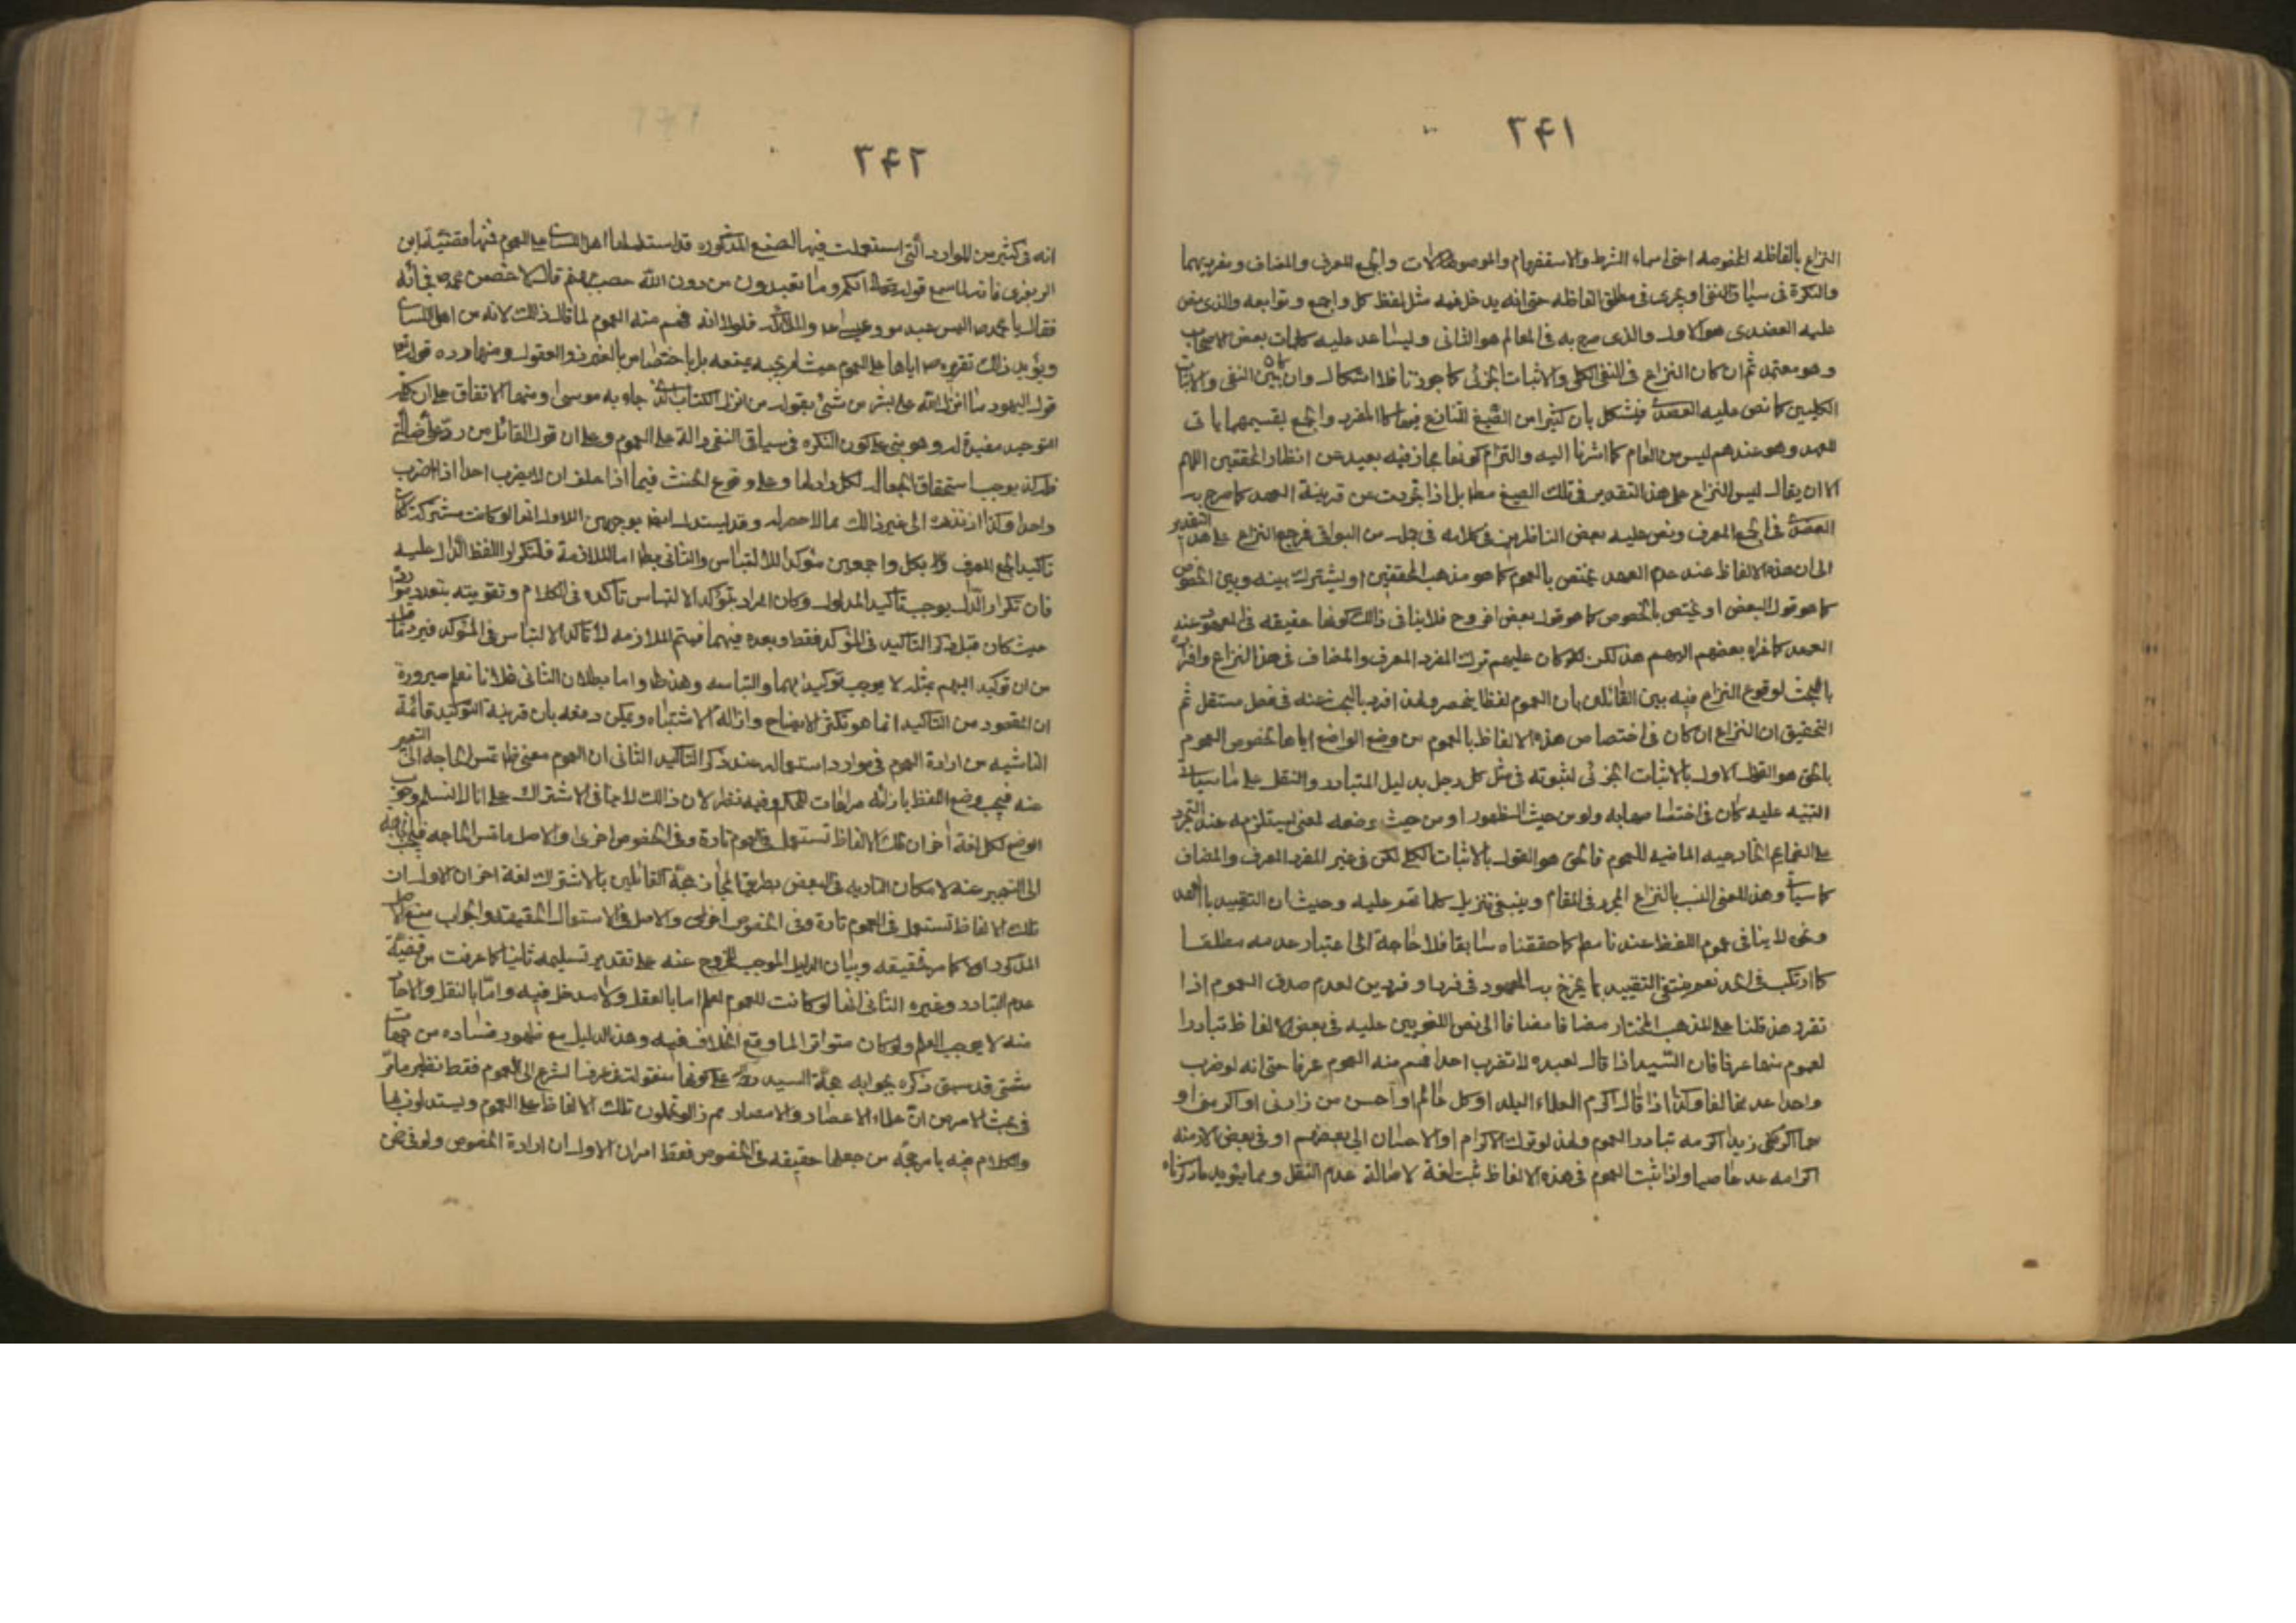 ٢٤١
النزاع بالفاظه المخصوصه اعنى اسماء الشرط والاستفهام والموصولات والجمع المعرف والمضاف ومفرديهما
والنكرة فى سياق النفى او يجرى فى مطلق الفاظه حتى انه يدخل فيه مثل لفظ كل واجمع وتوابعه والذى نص
عليه العضدى هو الاول والذى صرح به فى المعالم هو الثانى وليساعد عليه كلمات بعض الاصحاب
وهو معتمد ثم ان كان النزاع فى النفى الكلى والاثبات الجزئى كما جوزناه فلا اشكال وان كان بين النفى والاثبات
الكليين كما نص عليه العضدى فيشكل بان كثيرا من الصيغ المتنازع فيها كالمفرد والجمع بقسيمهما ياتى
للعهد وهو عندهم ليس من العام كما اشرنا اليه والتزام كونها مجاز فيه بعيد عن انظار المحققين اللهم
الا ان يقال ليس النزاع على هذا التقدير فى تلك الصيغ مطا بل اذا تجردت عن قرينة العهد كما صرح به
العضدى فى الجمع المعرف ونص عليه بعض الناظرين فى كلامه فى جملة من البواقى فرجع النزاع على هذا التقدير
الى ان هذه الالفاظ عند عدم العهد يختص بالعموم كما هو مذهب المحققين او يشترك بينه وبين الخصوص
كما هو قول البعض او يختص بالخصوص كما هو قول بعض اخر وح فلا ينافى ذلك كونها حقيقه فى المعهود عند
العهد كما عزاه بعضهم اليهم هذا لكن كان عليهم ترك المفرد المعرف والمضاف فى هذا النزاع وافراده
بالبحث لوقوع النزاع فيه بين القائلين بان العموم لفظا يخصه ولهذا افرد بالبحث عنه فى فصل مستقل ثم
التحقيق ان النزاع ان كان فى اختصاص هذه الالفاظ بالعموم من وضع الواضع اياها لخصوص العموم
فالحق هو القول الاول بالاثبات الجزئى لثبوته فى مثل كل رجل بدليل التبادر والنقل على ما سياتى
التنبيه عليه وان كان فى اختصاصها به ولو من حيث الظهور او من حيث وضعه لمعنى يستلزمه عند التجرد
على الضمايم الخارجيه المانعيه للعموم فالحق هو القول بالاثبات الكلى لكن فى غير المفرد المعرف والمضاف
كما سياتى وهذا المعنى انسب بالنزاع المحرر فى المقام وينبغى تنزيل كلماتهم عليه وحيث ان التقييد بالعهد
ونحوه لا ينافى عموم اللفظ عندنا مطا كما حققناه سابقا فلا حاجة الى اعتبار عدمه مطلقا
كما ارتكب فى الحد نعم ينتفى التقييد بما يخرج به المعهود فى فرد او فردين لعدم صدق العموم اذا
تقرر هذا قلنا على المذهب المختار مضافا الى نص اللغويين عليه فى بعض الالفاظ تبادر
العموم منها عرفا فان السيد اذا قال لعبده لا تضرب احدا فهم منه العموم عرفا حتى انه لو ضرب
واحدا عد مخالفا وكذا اذا قال اكرم العلماء البلد او كل عالم او احسن من زارنى او اكرمنى او
اكرمه تبادر العموم ولهذا لو ترك الاكرام او الاحسان الى بعضهم او فى بعض الازمنه
اكرامه عد عاصيا واذا ثبت العموم فى هذه الالفاظ ثبت لغة لاصالة عدم النقل ومما يؤيد ما ذكرناه
٢٤٢
انه فى كثير من الموارد التى استعملت فيها الصيغ المذكوره قد استدل اهل اللسان على العموم فمنها قضية ابن
الزبعرى فانه لما سمع قوله تعالى انكم وما تعبدون من دون الله حصب جهنم قال لاخصمن محمدا ص فجائه
فقال يا محمد ص اليس عبد موسى وعيسى والملائكه فلولا انه فهم منه العموم لما قال ذلك لانه من اهل اللسان
ويؤيد ذلك تقريره ص اياها على العموم حيث لم يجبه بمنعه بل باختصاص ما بغير ذوى العقول ومنها رده قوله تعالى
قول اليهود ما انزل الله على بشر من شئ بقوله من انزل الكتاب الذى جاء به موسى ومنها الاتفاق على ان كلمة
التوحيد مفيدة له وهو مبنى على كون النكره فى سياق النفى دالة على العموم وعلى ان قول القائل من رد على ضالتى
فله كذا يوجب استحقاق الجعال لكل رادلها وعلى وقوع الحنث فيما اذا حلف ان لا يضرب احدا اذا ضرب
واحدا وكذا ان نذر الى غير ذلك مما لا حصر له وقد يستدل ايضا بوجهين الاول انها لو كانت مشتركة لكان
تاكيد الجمع المعرف بكل واجمعين مؤكدا للالتباس والثانى بطا اما الملازمة فلتكرار اللفظ الدال عليه
فان تكرار الدال يوجب تاكيد المدلول وكان المراد بتوكد الالتباس تاكده فى الكلام وتقويته بتعدد موارده
حيث كان قبل ذكر التاكيد فى المؤكد فقط وبعده فيهما فيتم الملازمه لا تاكد الالتباس فى المؤكد فيرد ما قيل
من ان توكيد المبهم بمثله لا يوجب توكيد ابهامه والتباسه وهذا ظ واما بطلان الثانى فلانا نعلم ضرورة
ان المقصود من التاكيد انما هو تكثير الايضاح وازالة الاشتباه ويمكن دفعه بان قرينة التوكيد قائمة
الناشيه من ارادة العموم فى موارد استعماله عند ذكر التاكيد الثانى ان العموم معنى ظ تمس الحاجه الى التعبير
عنه فيجب وضع اللفظ بازائه مراعات للحكم وفيه نظر لان ذلك لا ينافى الاشتراك على انا لا نسلم وجوب
الوضع لكل لغة اخر ان تلك الالفاظ تستعمل فى العموم تارة وفى الخصوص اخرى والاصل ما تمس الحاجه
الى التعبير عنه لامكان التاديه فى البعض بطريق المجاز حجة القائلين بالاشتراك لغة امران الاول ان
تلك الالفاظ تستعمل فى العموم تارة وفى الخصوص اخرى والاصل فى الاستعمال الحقيقة والجواب منع الاصل
المذكور اولا كما مر تحقيقه وبيان الدليل الموجب للخروج عنه على تقدير تسليمه ثانيا كما عرفت من قضية
عدم التبادر وغيره الثانى انها لو كانت للعموم لعلم اما بالعقل ولا مدخل فيه واما بالنقل والاحاد
منه لا يوجب العلم ولو كان متواترا لما وقع الخلاف فيه وهذا الدليل مع ظهور فساده من جهات
شتى قد سبق ذكره بجوابه حجة السيد ره على كونها منقولة فى عرف الشرع الى العموم فقط نظير ما مر
فى بحث الامر من ان علماء الاعصار والامصار لم يزالوا يحملون تلك الالفاظ على العموم ويستدلون بها
والكلام فيه ما مر حجة من جعلها حقيقه فى الخصوص فقط امران الاول ان ارادة الخصوص ولو فى ضمن